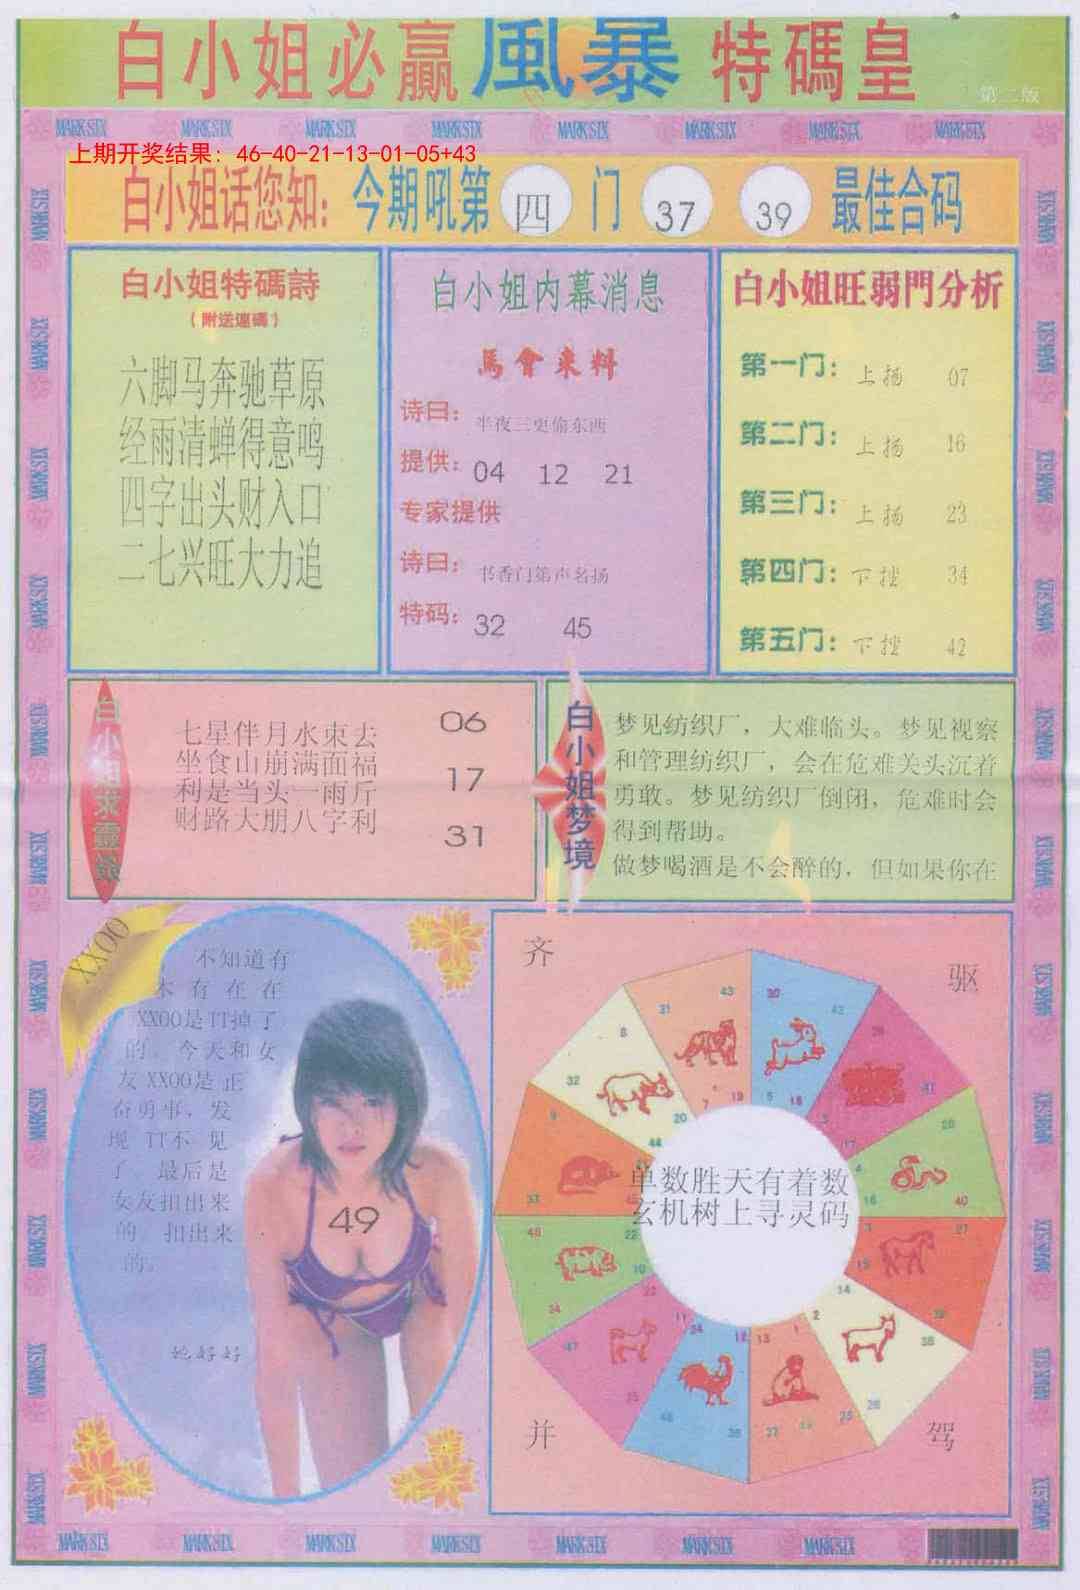 白小姐必赢風暴特碼皇
第二版
MARK SIX MARK SIX MARK SIX MARK SIX MARK SIX MARK SIX MARK SIX MARK SIX
上期开奖结果：46-40-21-13-01-05+43
白小姐话您知：今期吼第 四 门 37 39 最佳合码
白小姐特碼詩
（附送連碼）
六脚马奔驰草原
经雨清蝉得意鸣
四字出头财入口
二七兴旺大力追
白小姐内幕消息
馬會来料
诗曰：半夜三更偷东西
提供：04 12 21
专家提供
诗曰：书香门第声名扬
特码：32 45
白小姐旺弱門分析
第一门：上扬 07
第二门：上扬 16
第三门：上扬 23
第四门：下挫 34
第五门：下挫 42
七星伴月水東去
坐食山崩满面福
利是当头一雨斤
财路大朋八字利
06
17
31
白小姐梦境
梦见纺织厂，大难临头。梦见视察
和管理纺织厂，会在危难关头沉着
勇敢。梦见纺织厂倒闭，危难时会
得到帮助。
做梦喝酒是不会醉的，但如果你在
XXOO
不知道有
木 有 在 在
XXOO是TT掉了
的。今天和女
友 XXOO是 正
奋勇事，发
现 TT不 见
了 最后是
女友扣出来
的。扣出来
的。
她好好
49
齐
驱
单数胜天有着数
玄机树上寻灵码
并
驾
MARK SIX MARK SIX MARK SIX MARK SIX MARK SIX MARK SIX MARK SIX